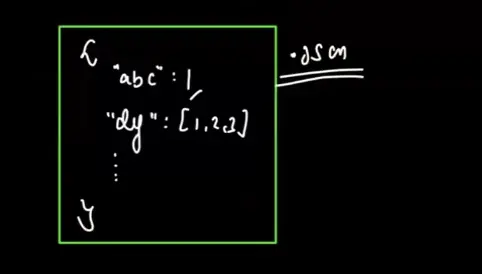 {
"abc" : 1,
"dy" : [1,2,3]
⋮
}
.json